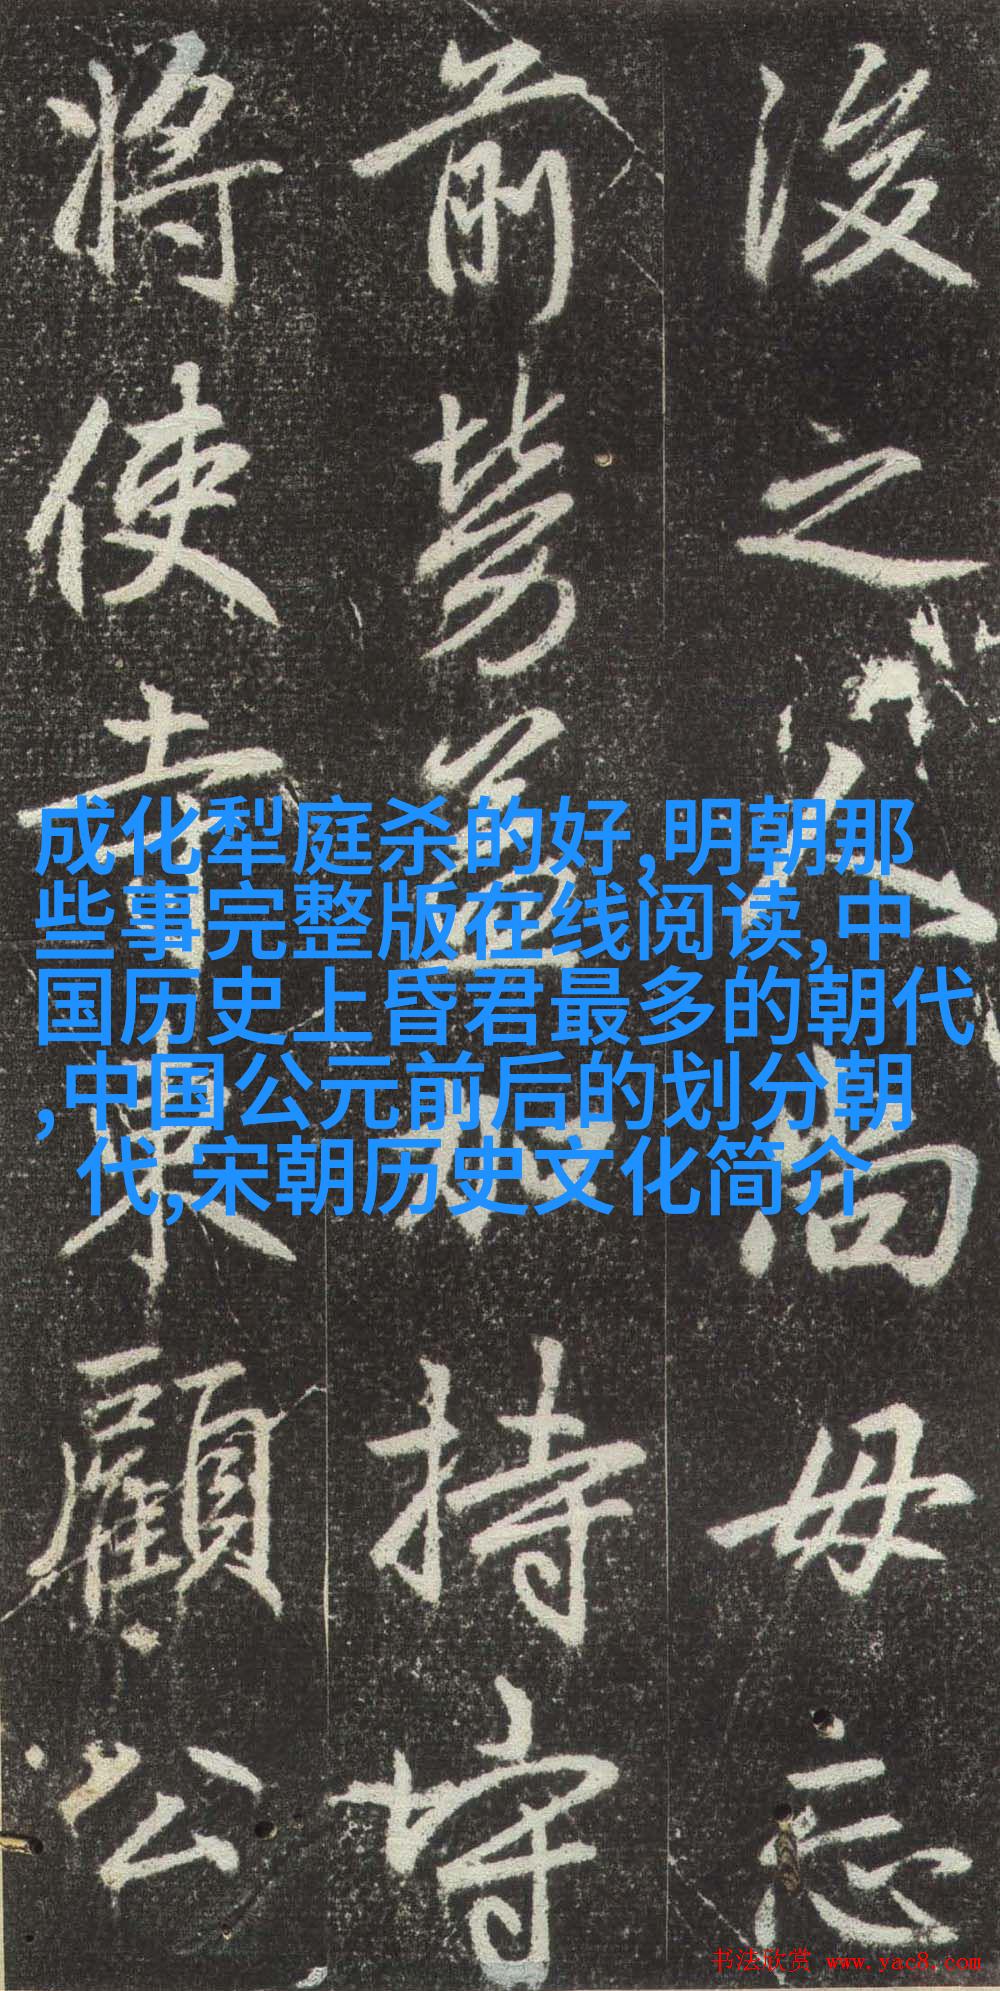 後之人尚毋忘
前勞益加持守
將使東顧公
成化犁庭杀的好,明朝那
些事完整版在线阅读,中
国历史上昏君最多的朝代
,中国公元前后的划分朝
代,宋朝历史文化简介
书法欣赏 www.yac8.com